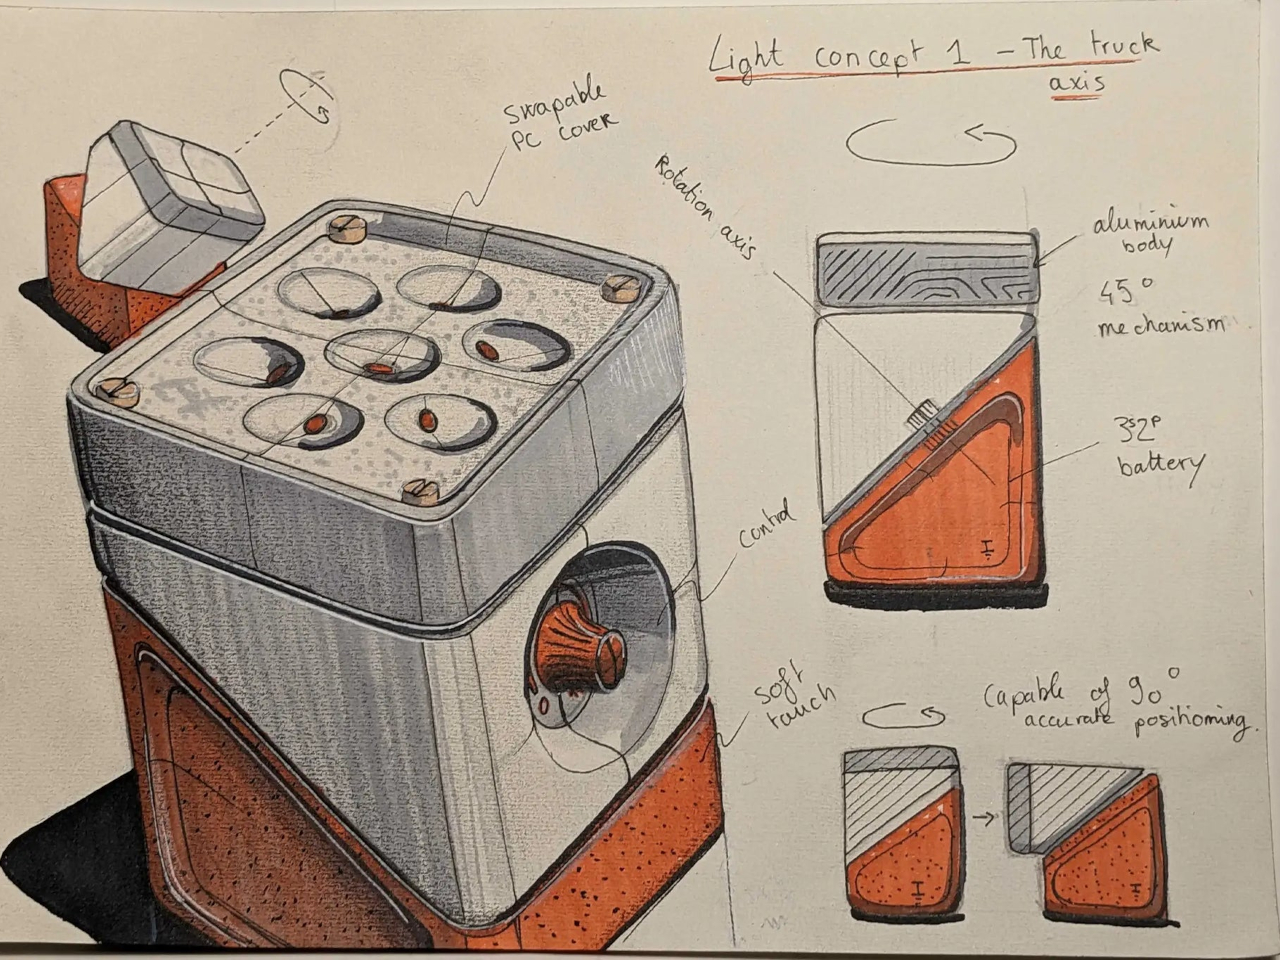 Light concept 1 - The truck
axis
swapable
PC cover
Rotation axis
aluminium
body
45°
mechanism
3s2p
battery
control
soft
touch
Capable of 90°
accurate positioning.